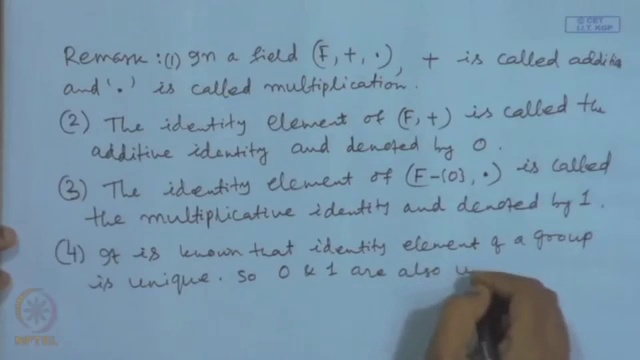 © CET
I.I.T. KGP
Remark : (1) In a field (F, +, ·), + is called additio
and '·' is called multiplication.
(2) The identity element of (F, +) is called the
additive identity and denoted by 0.
(3) The identity element of (F-{0}, ·) is called
the multiplicative identity and denoted by 1.
(4) It is known that identity element of a group
is unique. So 0 & 1 are also u
NPTEL